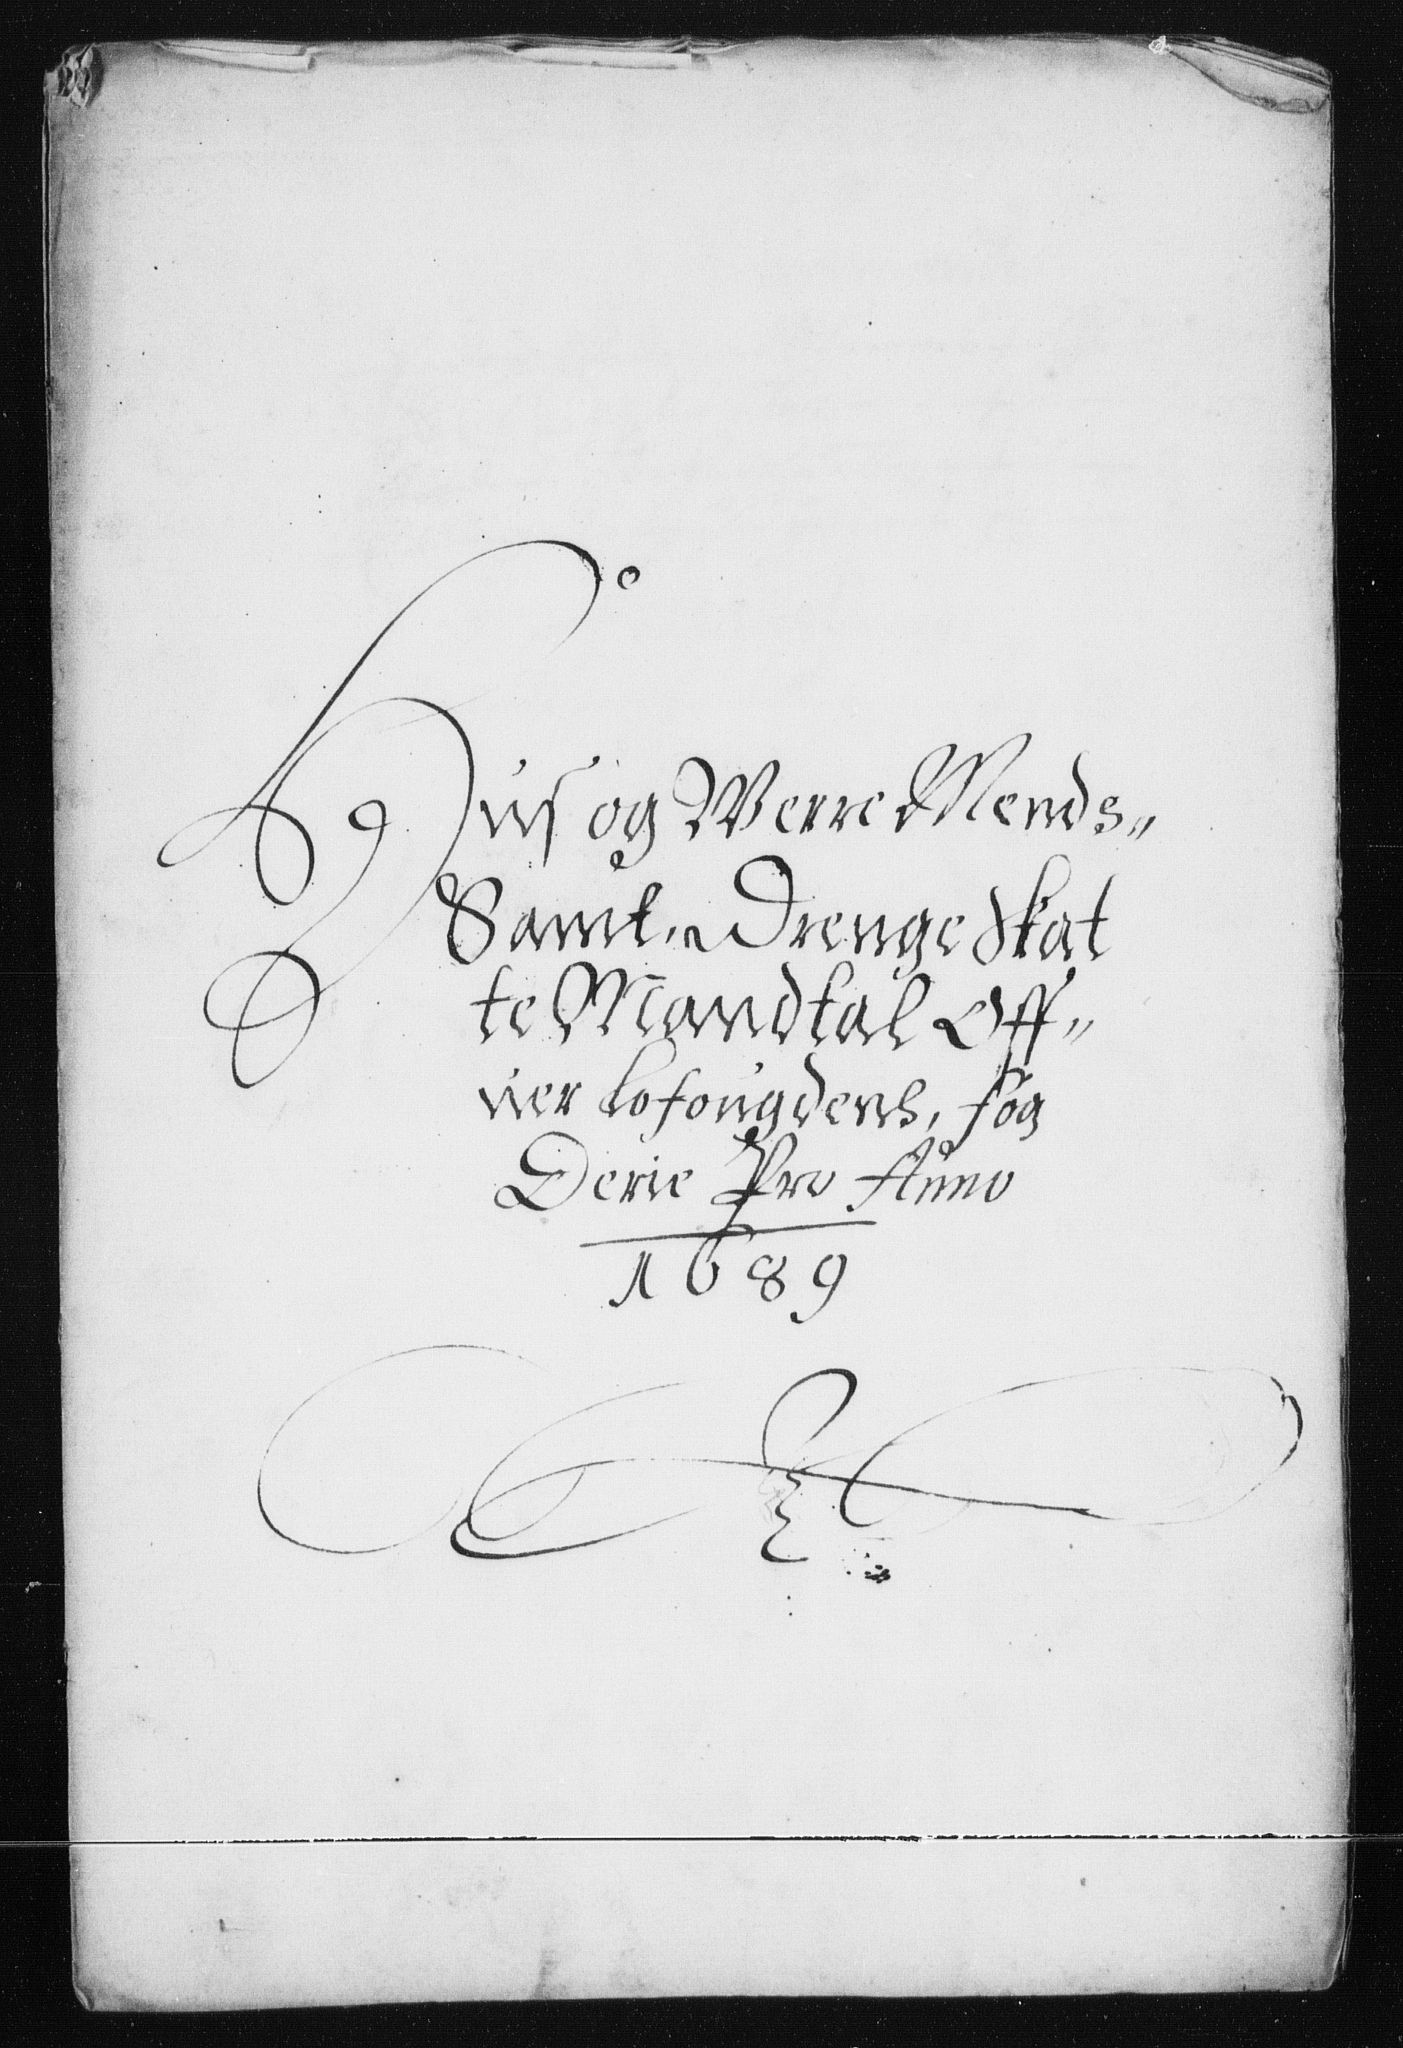 Huus og Werre Mends=
Samt, Drenge Skat
te Mandtal Off=
uer Lofougdens, fog
Derie Pro Anno
1689